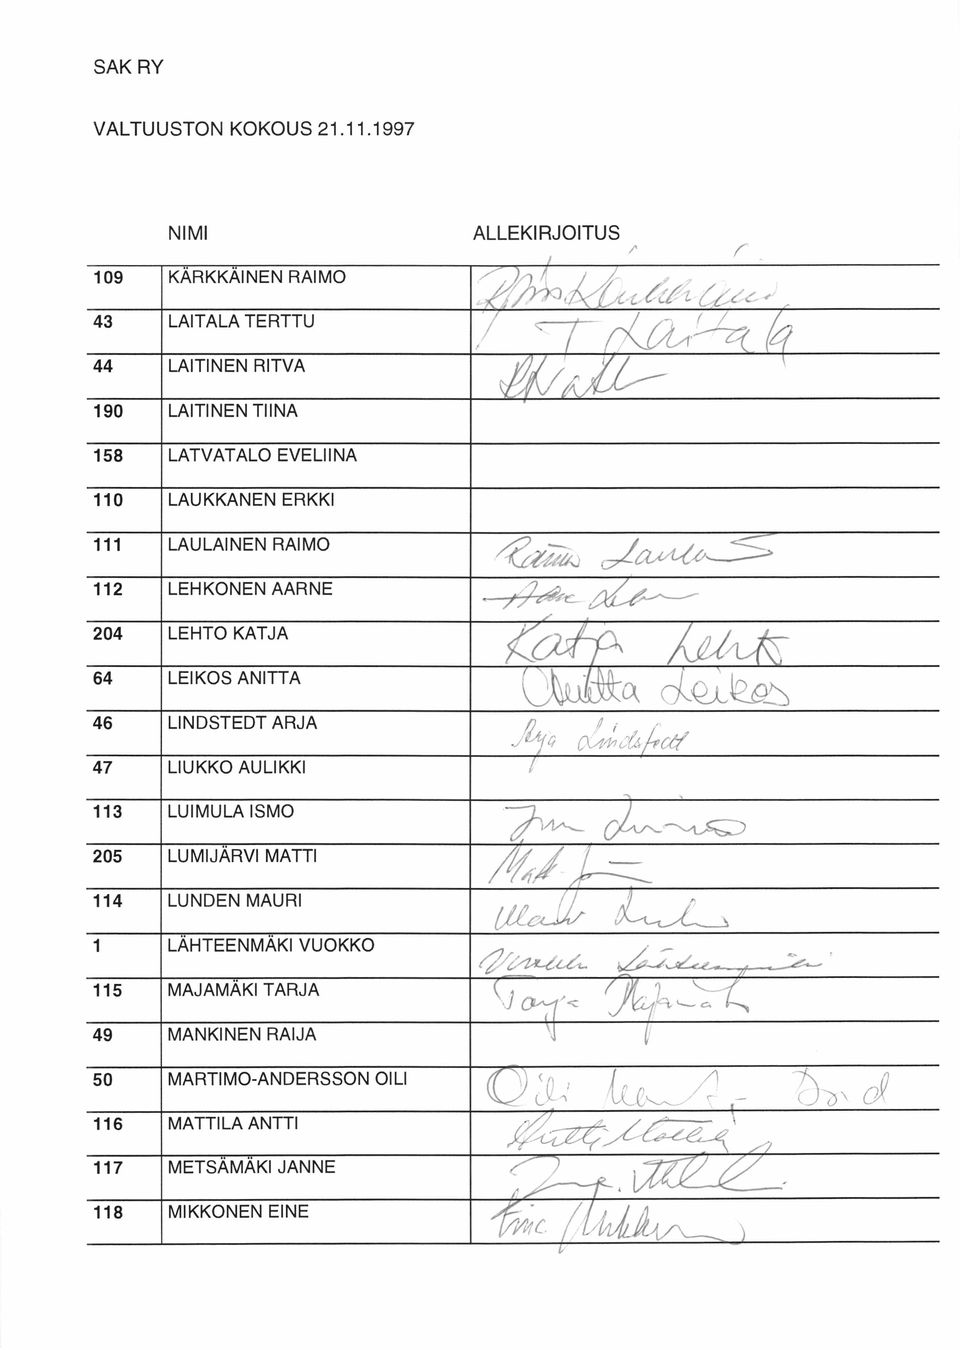 SAK RY
VALTUUSTON KOKOUS 21.11.1997
NIMI ALLEKIRJOITUS
109 KÄRKKÄINEN RAIMO
43 LAITALA TERTTU T Laitala
44 LAITINEN RITVA
190 LAITINEN TIINA
158 LATVATALO EVELIINA
110 LAUKKANEN ERKKI
111 LAULAINEN RAIMO
112 LEHKONEN AARNE
204 LEHTO KATJA Katja Lehto
64 LEIKOS ANITTA Anitta Leikos
46 LINDSTEDT ARJA Arja Lindstedt
47 LIUKKO AULIKKI
113 LUIMULA ISMO
205 LUMIJÄRVI MATTI
114 LUNDEN MAURI
1 LÄHTEENMÄKI VUOKKO
115 MAJAMÄKI TARJA Tarja
49 MANKINEN RAIJA
50 MARTIMO-ANDERSSON OILI Oili
116 MATTILA ANTTI Antti Mattila
117 METSÄMÄKI JANNE
118 MIKKONEN EINE